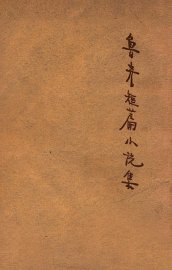 鲁光短篇小说集